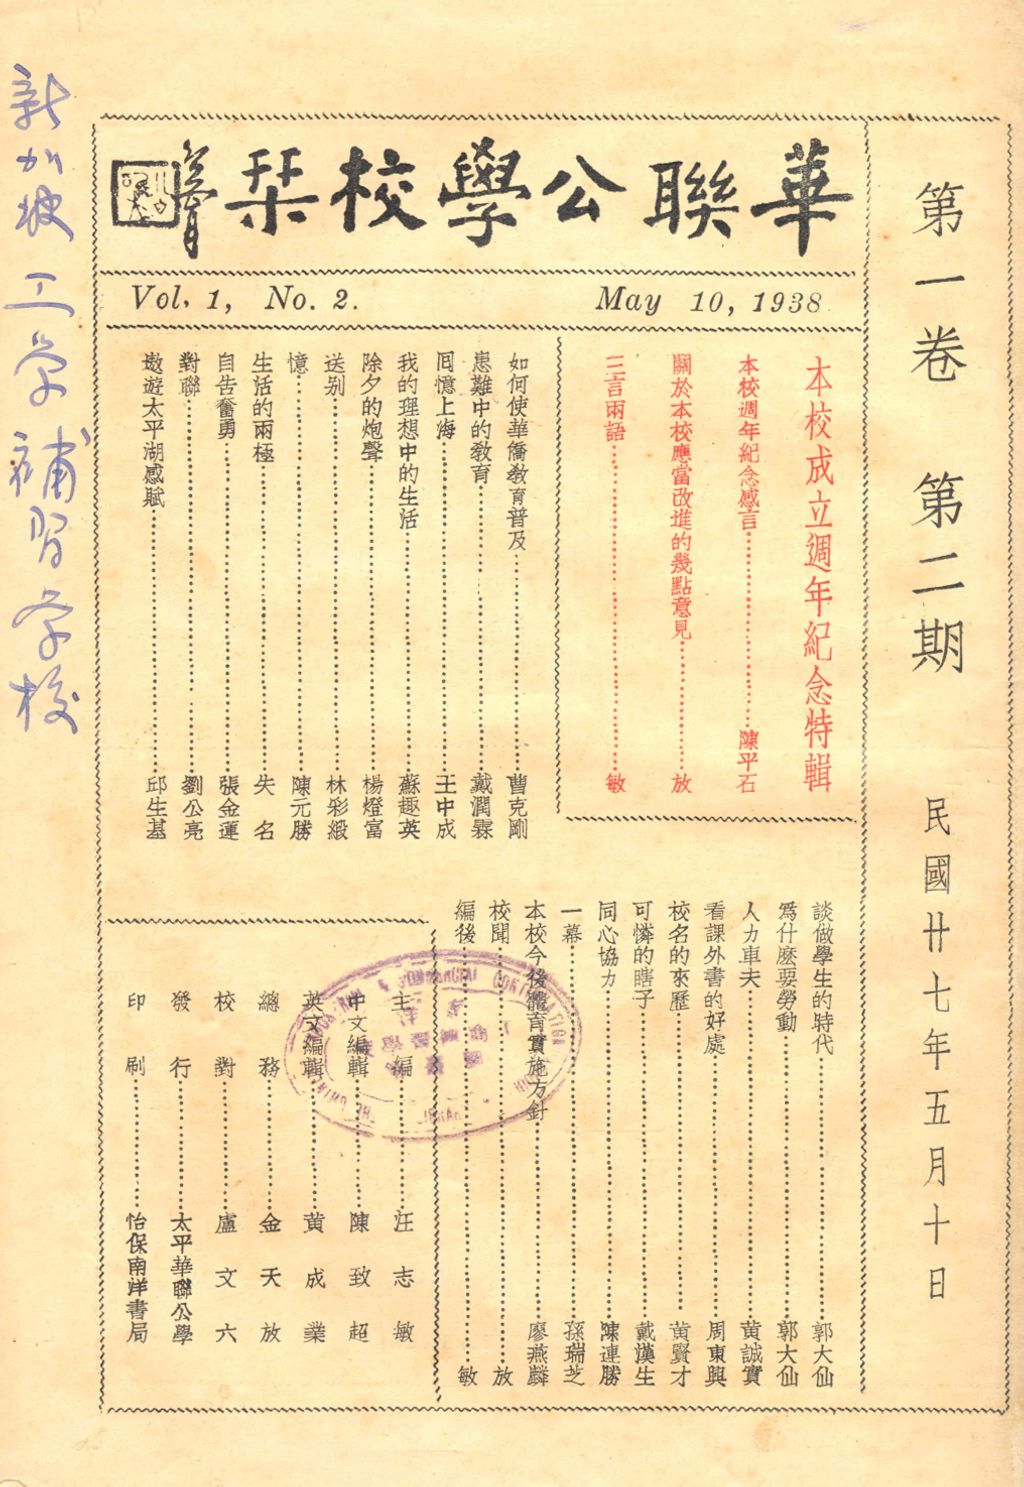 新加坡工学補習学校
第一卷 第二期 民國廿七年五月十日
華聯公學校栞
Vol. 1, No. 2. May 10, 1938
本校成立週年紀念特輯
本校週年紀念感言……陳平石
關於本校應當改進的幾點意見……放
三言兩語……敏
如何使華僑教育普及……曹克剛
患難中的教育……戴潤霖
囘憶上海……王中成
我的理想中的生活……蘇趣英
除夕的炮聲……楊燈富
送別……林彩緞
憶……陳元勝
生活的兩極……失名
自告奮勇……張金運
對聯……劉公亮
遨遊太平湖感賦……邱生基
談做學生的時代……郭大仙
爲什麽要勞動……郭大仙
人力車夫……黄誠實
看課外書的好處……周東興
校名的來歷……黄賢才
可憐的瞎子……戴漢生
同心協力……陳連勝
一幕……孫瑞芝
本校今後體育實施方針……廖燕麟
校聞……放
編後……敏
主編……汪志敏
中文編輯……陳致超
英文編輯……黄成業
總務……金天放
校對……盧文六
發行……太平華聯公學
印刷 怡保南洋書局